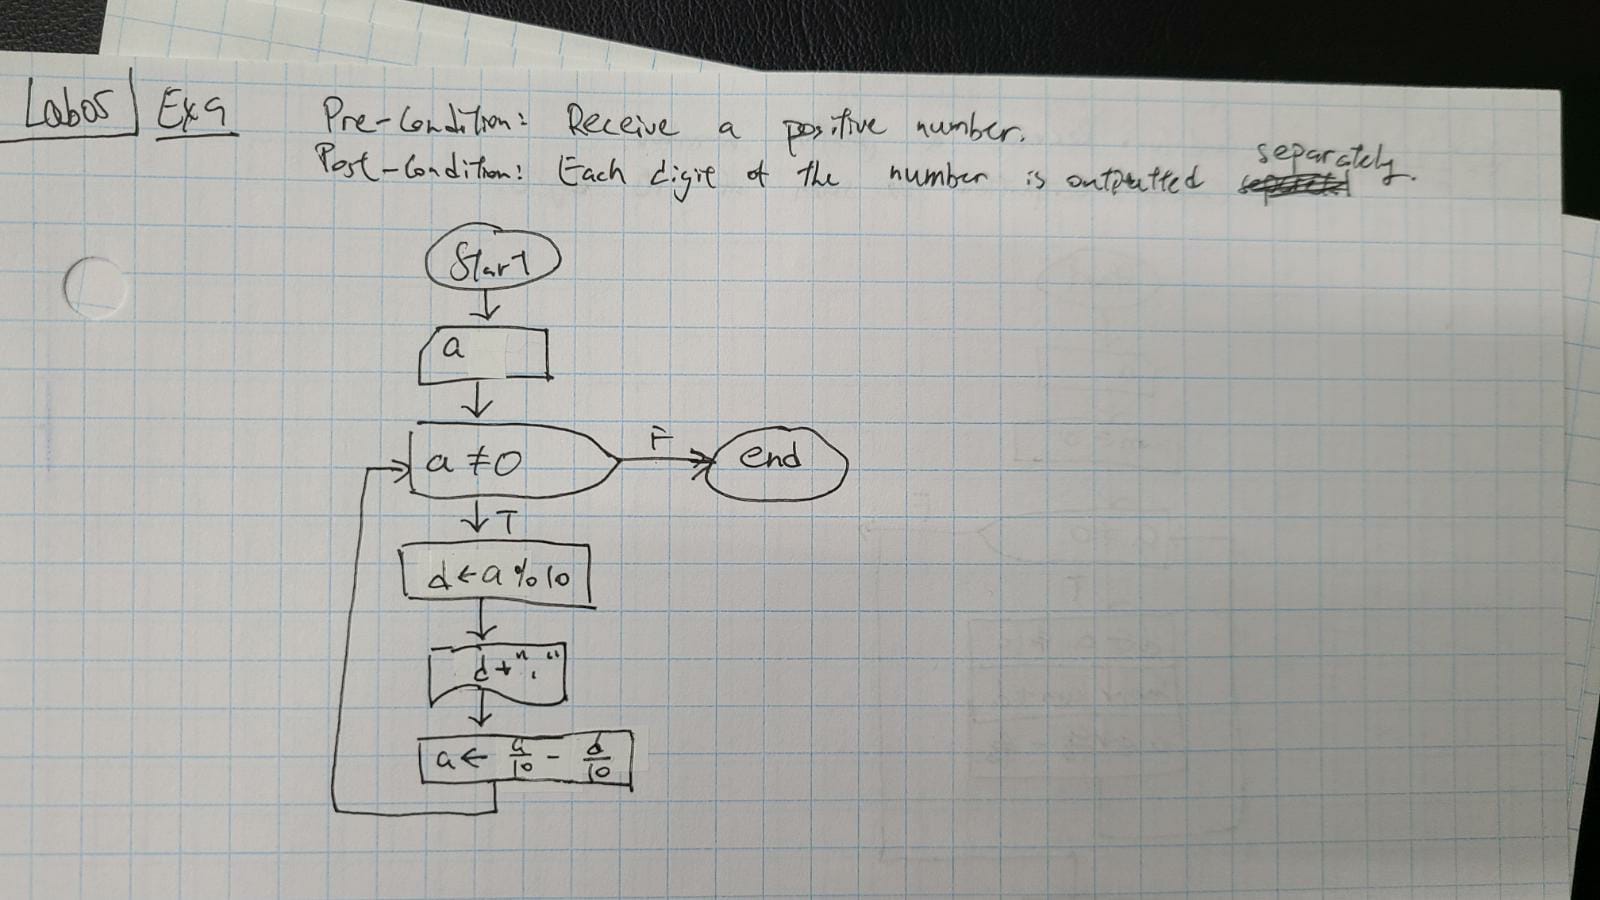 Lab05 Ex9
Pre-Condition: Receive a positive number.
Post-Condition: Each digit of the number is outputted separately.
Start
a
a ≠ 0
F
end
T
d ← a % 10
d + ", "
a ← a/10 - d/10